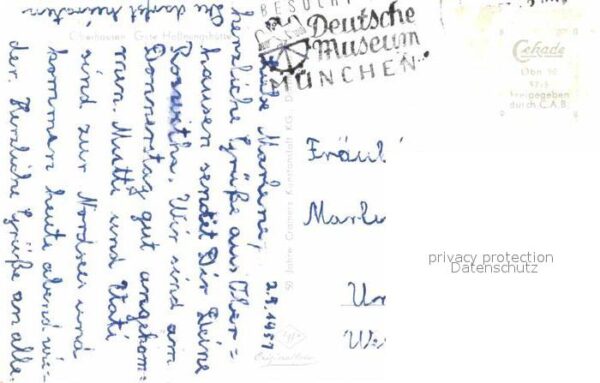 2.9.1957
Liebe Marlene,
herzliche Grüße aus Ober=
hausen sendet Dir Deine
Roswitha. Wir sind am
Donnerstag gut angekom=
men. Mutti und Vati
sind zur Nordsee und
kommen heute abend wie-
der. Herzliche Grüße an alle.
Du darfst
Oberhausen Gute Hoffnungshütte
50 Jahre Cramers Kunstanstalt KG. D
BESUCHT
Deutsche
Museum
MÜNCHEN
Cekade
Obh 50
freigegeben
durch C.A.B.
Fräul
Marle
Un
We
privacy protection
Datenschutz
Agfa
Original